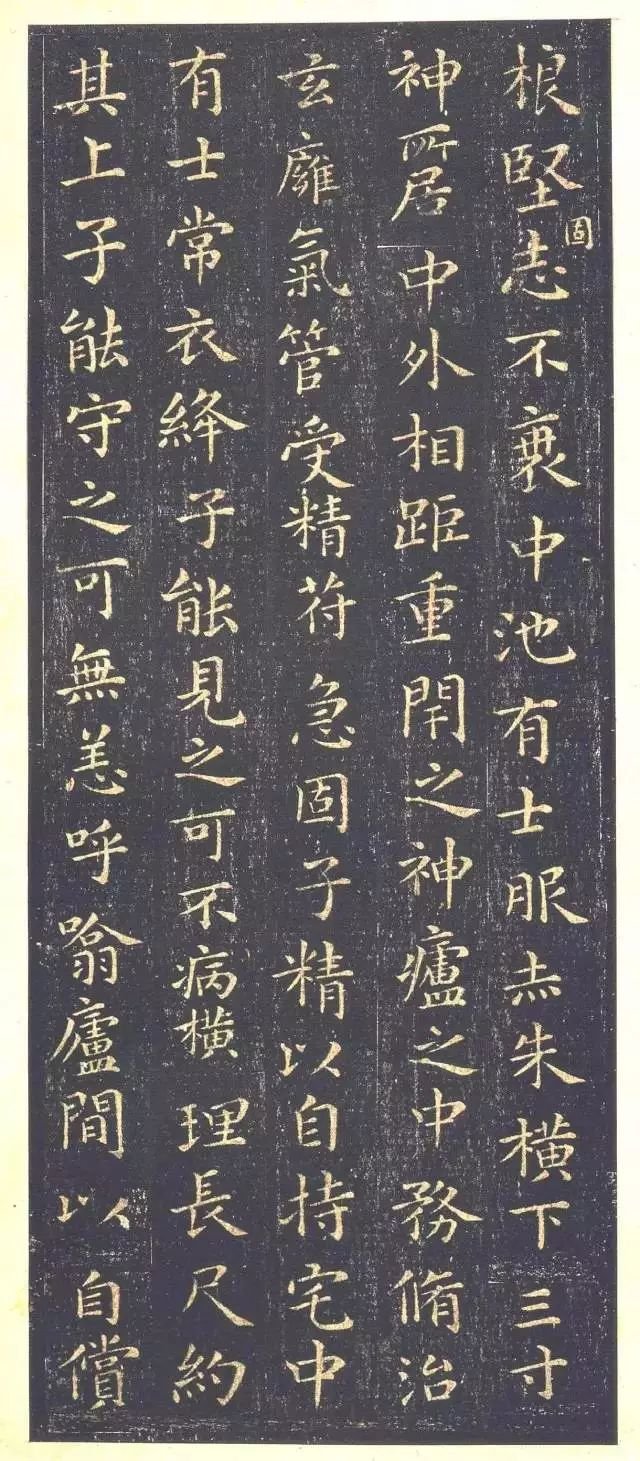 根堅志固不衰中池有士服赤朱橫下三寸
神所居中外相距重閇之神廬之中務脩治
玄廱氣管受精苻急固子精以自持宅中
有士常衣絳子能見之可不病橫理長尺約
其上子能守之可無恙呼噏廬間以自償